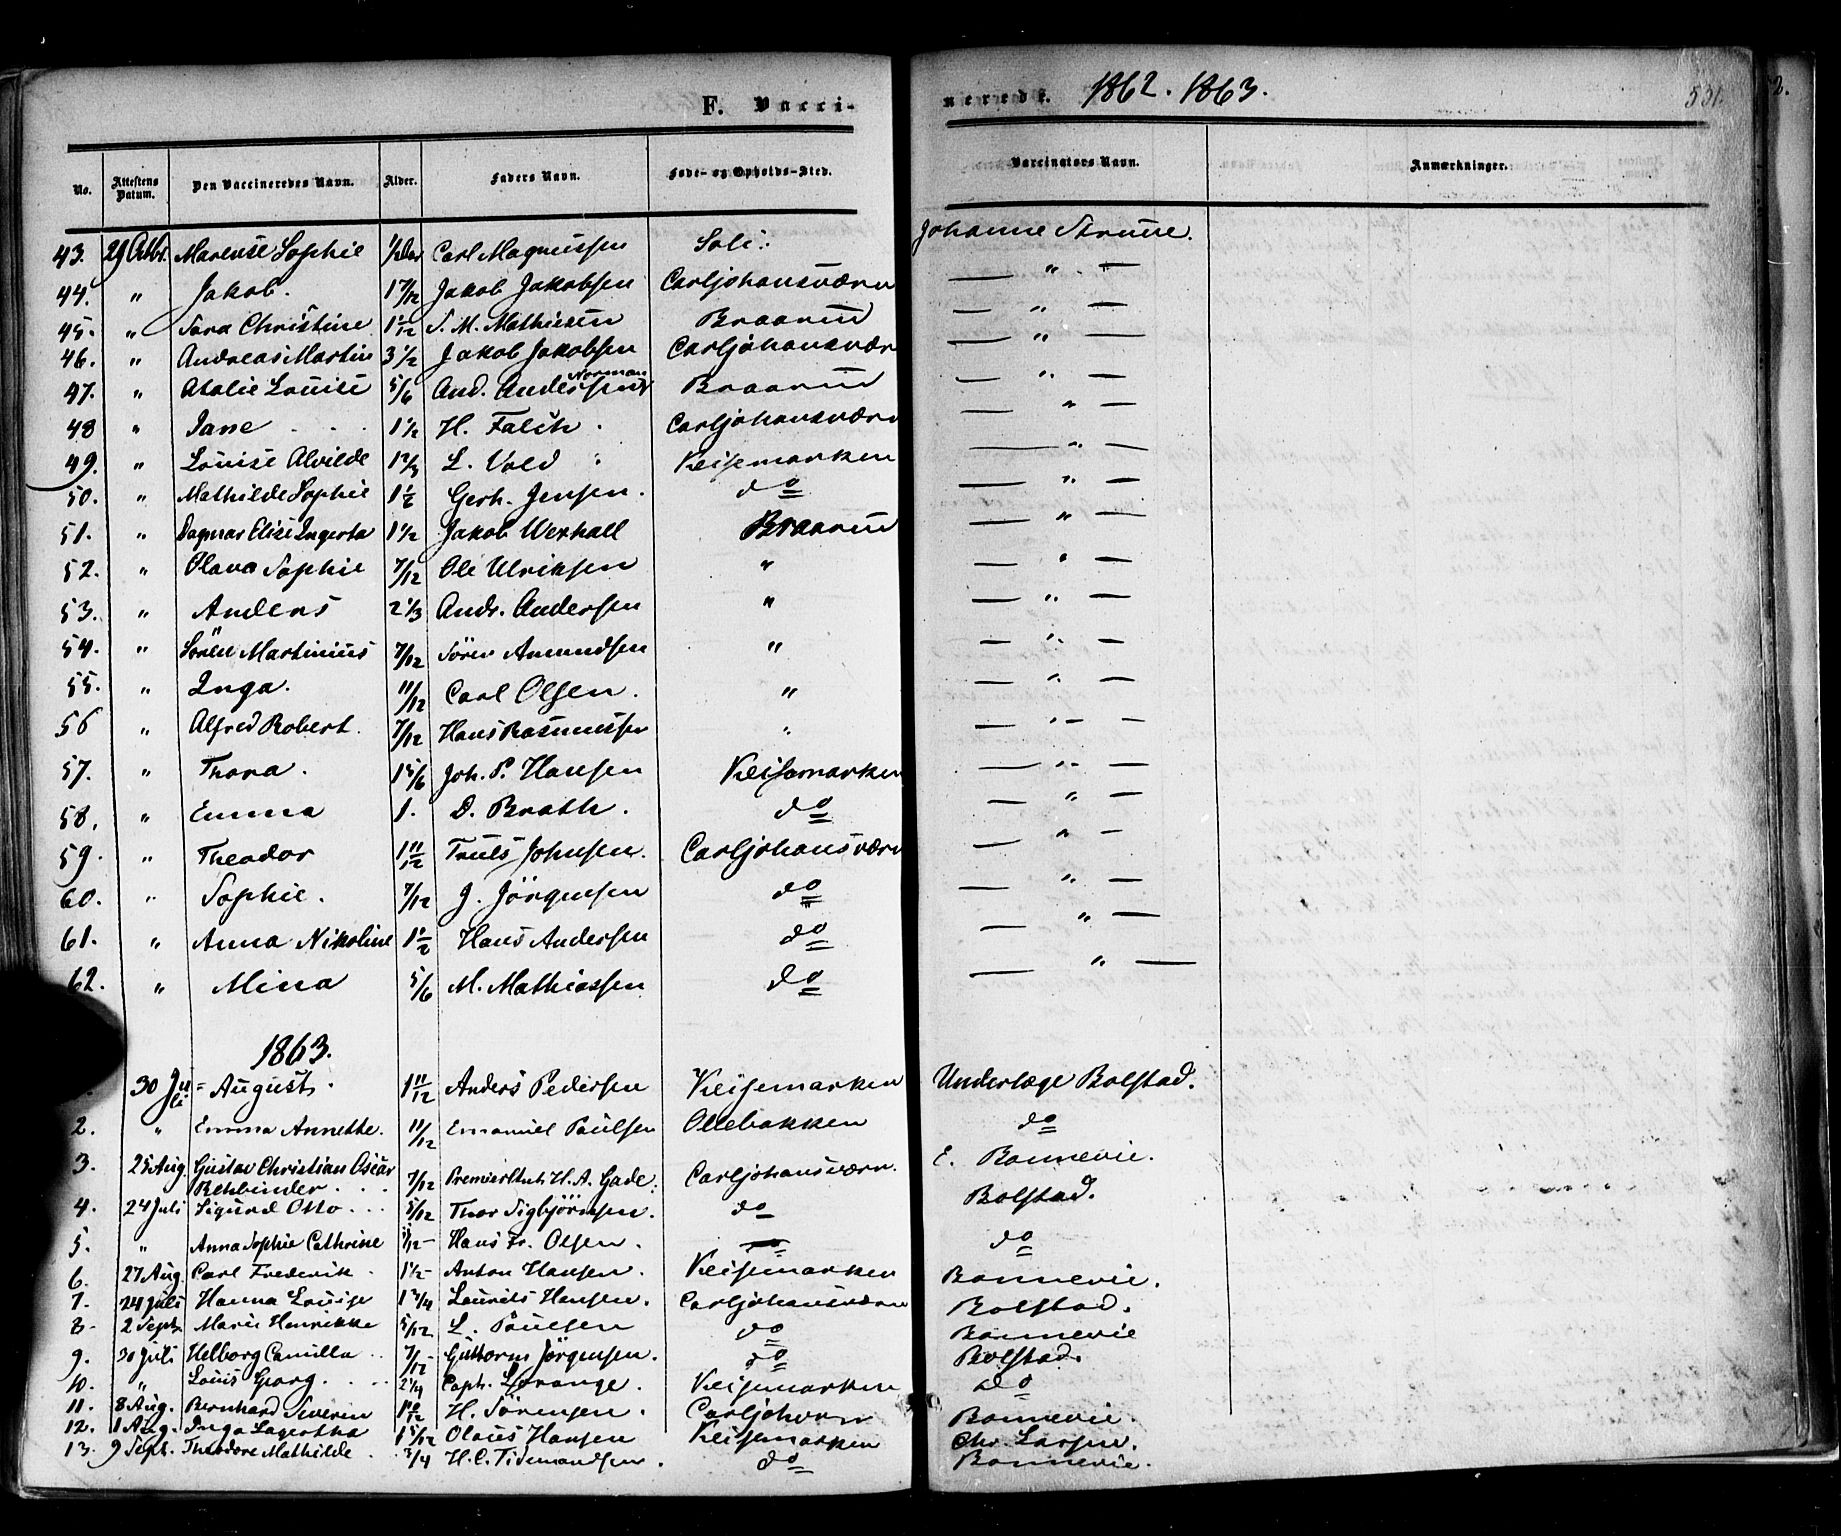 F. Vacci- nerede. 1862. 1863. 531.
No. Attestens Datum. Den Vaccineredes Navn. Alder. Faders Navn. Føde- og Opholds-Sted. Vaccinators Navn. Anmærkninger.
43. 29 Octbr. Marense Sophie Carl Magnussen Soli: Johanne Strüve.
44. " Jakob. 1 7/12 Jakob Jakobsen Carljohansværn — " —
45. " Sara Christine 1 1/12 S. M. Mathiesen Braarud — " —
46. " Andreas Martin 3 1/2 Jakob Jakobsen Carljohansvær — " —
47. " Atalie Louise 5/6 And. Anderssen Norman Braarud — " —
48 " Jane 1 1/2 H. Falch. Carljohansværn — " —
49. " Louise Alvilde 1 2/3 L. Vold Keisemarken — " —
50. " Mathilde Sophie 1 1/2 Gerh. Jensen. do — " —
51. " Dagmar Elise Ingerta 1 1/2 Jakob Wexhall Braarud — " —
52. " Olava Sophie 7/12 Ole Ulriksen " — " —
53. " Anders 2 1/3 Andr. Andersen " — " —
54. " Sören Martinius 7/12 Sören Amundsen " — " —
55. " Inga. 11/12 Carl Olsen. " — " —
56 " Alfred Robert. 7/12 Hans Rasmussen " — " —
57. " Thora. 1 5/6 Joh. P. Hansen Keisemarken — " —
58. " Emma 1. D. Brath. do — " —
59. " Theodor 1 11/12 Truls Johnsen. Carljohansværn — " —
60. " Sophie. 7/12 J. Jörgensen do — " —
61. " Anna Nikoline 1 1/2 Hans Andersen do — " —
62. " Mina 5/6 M. Mathiassen do — " —
1863.
30 Juli = August. 1 11/12 Anders Pedersen Keisemarken Underlæge Bolstad.
2. " Emma Annette. 11/12 Emanuel Paulsen Ollebakken do
3. 25 Aug. Gustav Christian Oscar Rehbinder 7/12 Premierltnt. H. A. Gade. Carljohansværn. E. Bonnevie.
4. 24 Juli Sigurd Otto 5/12 Thor Sigbjörnsen. do Bolstad.
5. " Anna Sophie Cathrine Hans Fr. Olsen. do do
6. 27 Aug. Carl Frederik 1 1/2 Anton Hansen. Keisemarken Bonnevie.
7. 24 Juli Hanna Louise 1 3/4 Laurits Hansen. Carljohansværn Bolstad.
8 - 2 Sept. Marie Henrikke 5/12 L. Paulsen do Bonnevie
9. 30 Juli Helborg Camilla 7/12 Guttorm Jörgensen. do Bolstad.
10. " Louis Georg. 2 1/4 Capt. Lorange. Keisemarken do
11. 8 Aug. Bernhard Severin H. Sörensen. Carljohværn Bonnevie.
12. 1 Aug. Inga Lagertha 1 5/12 Olaus Hansen Keisemarken Chr. Larsen.
13. 9 Sept. Theodore Mathilde 3/4 H. C. Tidemandsen. do Bonnevie.